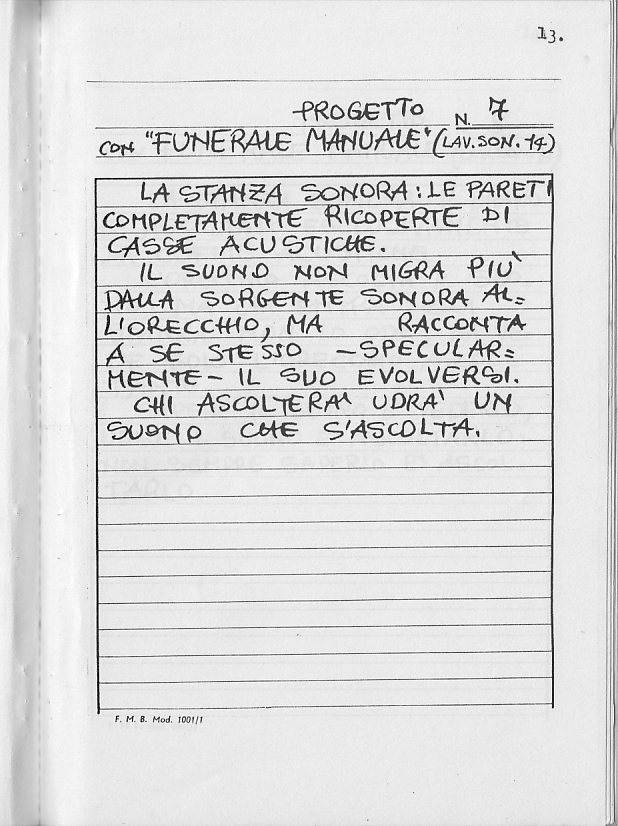 13.
PROGETTO N. 7
CON "FUNERALE MANUALE" (LAV. SON. 14)
LA STANZA SONORA: LE PARETI
COMPLETAMENTE RICOPERTE DI
CASSE ACUSTICHE.
IL SUONO NON MIGRA PIÙ
DALLA SORGENTE SONORA AL=
L'ORECCHIO, MA RACCONTA
A SE STESSO -SPECULAR=
MENTE- IL SUO EVOLVERSI.
CHI ASCOLTERA' UDRA' UN
SUONO CHE S'ASCOLTA.
F. M. B. Mod. 1001/1